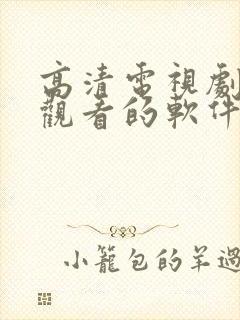 高清電視劇
觀看的軟件
小籠包的羊過